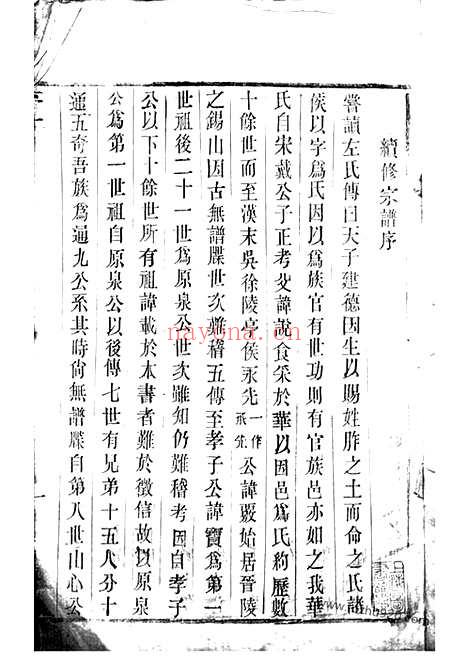 續修宗譜序
嘗讀左氏傳曰天子建德因生以賜姓胙之土而命之氏諸
侯以字爲氏因以爲族官有世功則有官族邑亦如之我華
氏自宋戴公子正考父諱說食采於華以因邑爲氏約歷數
十餘世而至漢末吳徐陵亭侯永先一作永先公諱覈始居晉陵
之錫山因古無譜牒世次難稽五傳至孝子公諱寶爲第一
世祖後二十一世爲原泉公世次雖知仍難稽考因自孝子
公以下十餘世所有祖諱載於本書者難於徵信故以原泉
公爲第一世祖自原泉公以後傳七世有兄弟十五人分十
通五奇吾族爲通九公系其時尙無譜牒自第八世山心公
nayona.cn